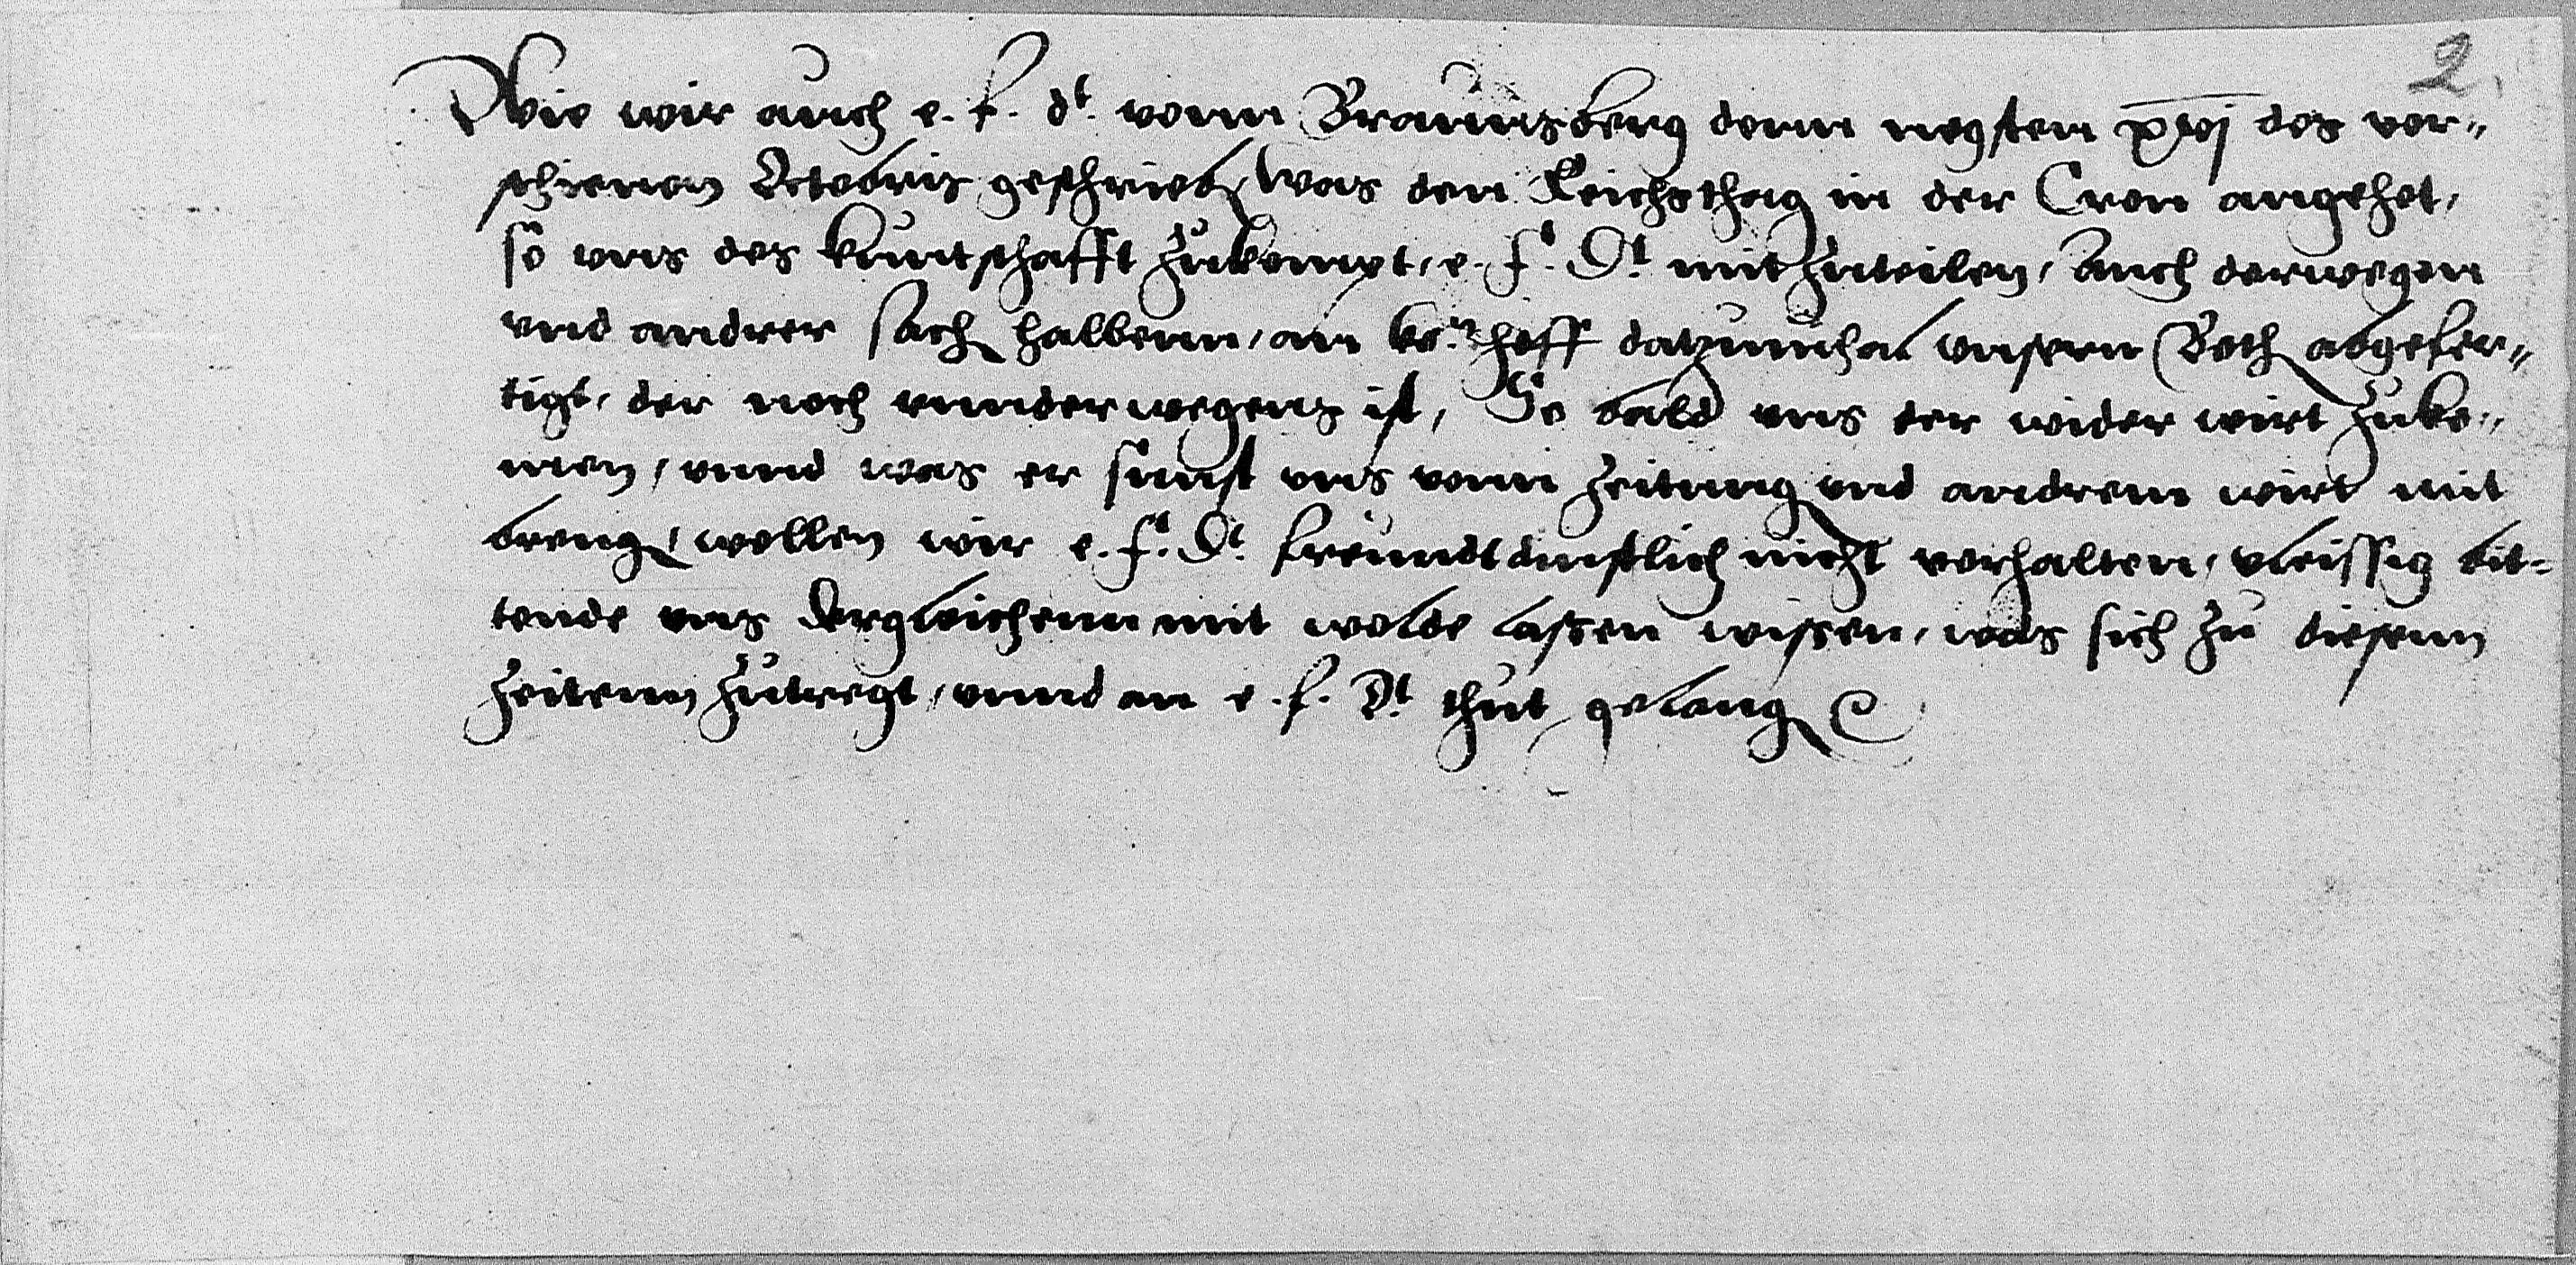 2
Wie wir auch e. f. dt. vonn Braunsberg denn negsten xvj des ver„
schienen Octobris geschrieben, was den Reichsthag in der Cron angehet,
so uns des kuntschafft zukompt, e. f. Dt. mitzuteilen, Auch derwegen
und andrer sach halbenn, an ko.n hoff datzumhal unsern Both abgefer„
tigt, der noch unnderwegens ist, So bald uns der wider wirt zuko„
men, unnd was er sunst uns vonn zeitung und andrem wirt mit
breng, wollen wir e. f. Dt. freundtdinstlich nicht verhalten, vleissig bit=
tende uns dergleichenn mit wolde lassen wissen, was sich zu diesenn
zeitenn zutregt, unnd an e. f. Dt. thut gelang